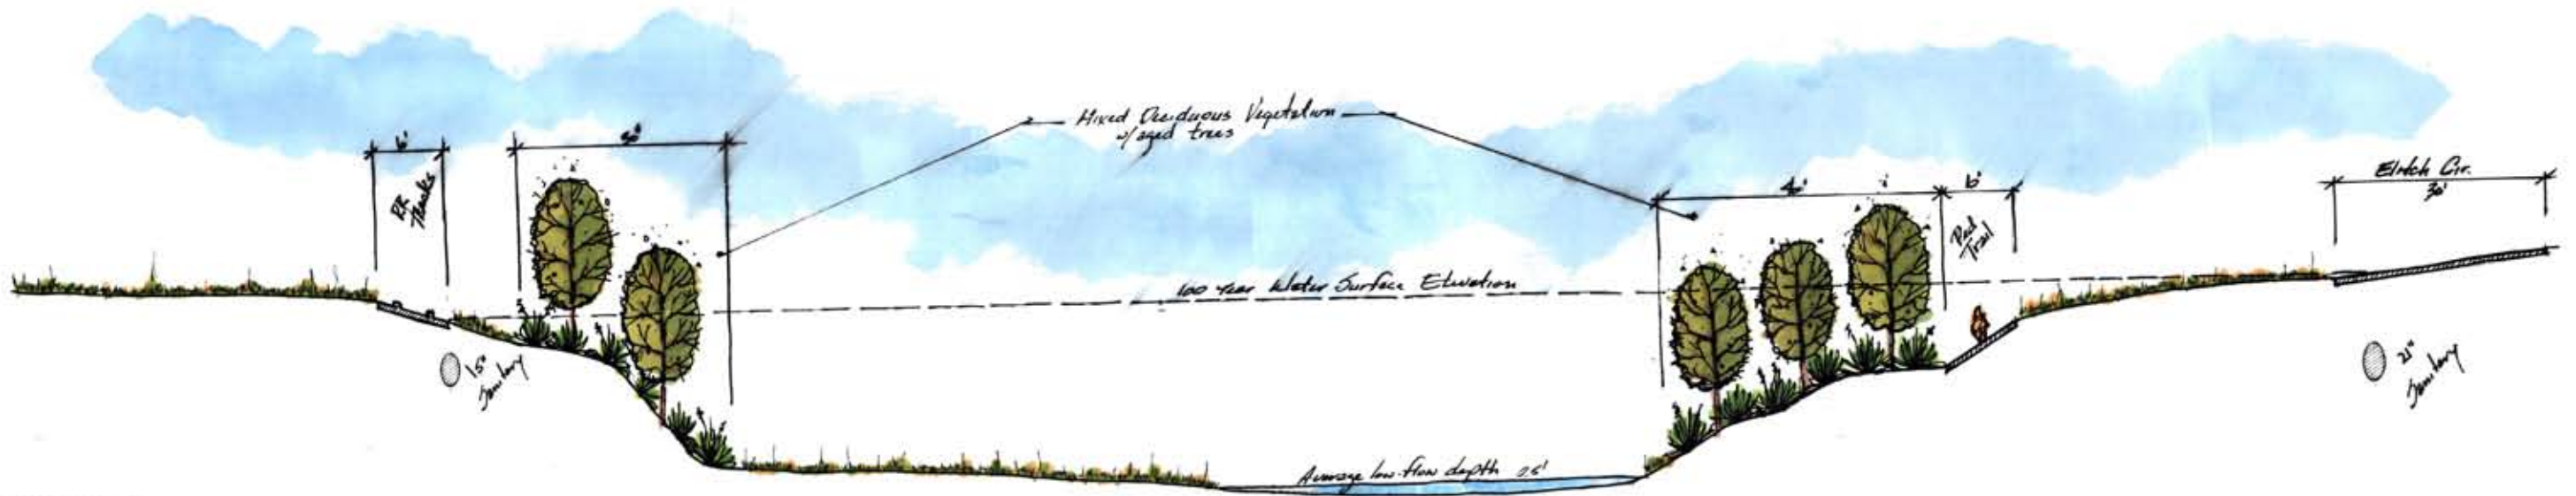 Mixed Deciduous Vegetation
w/ aged trees
6'
RR
Tracks
40'
6'
Ped
Trail
Elitch Cir.
30'
100 Year Water Surface Elevation
15"
Sanitary
21"
Sanitary
Average low-flow depth